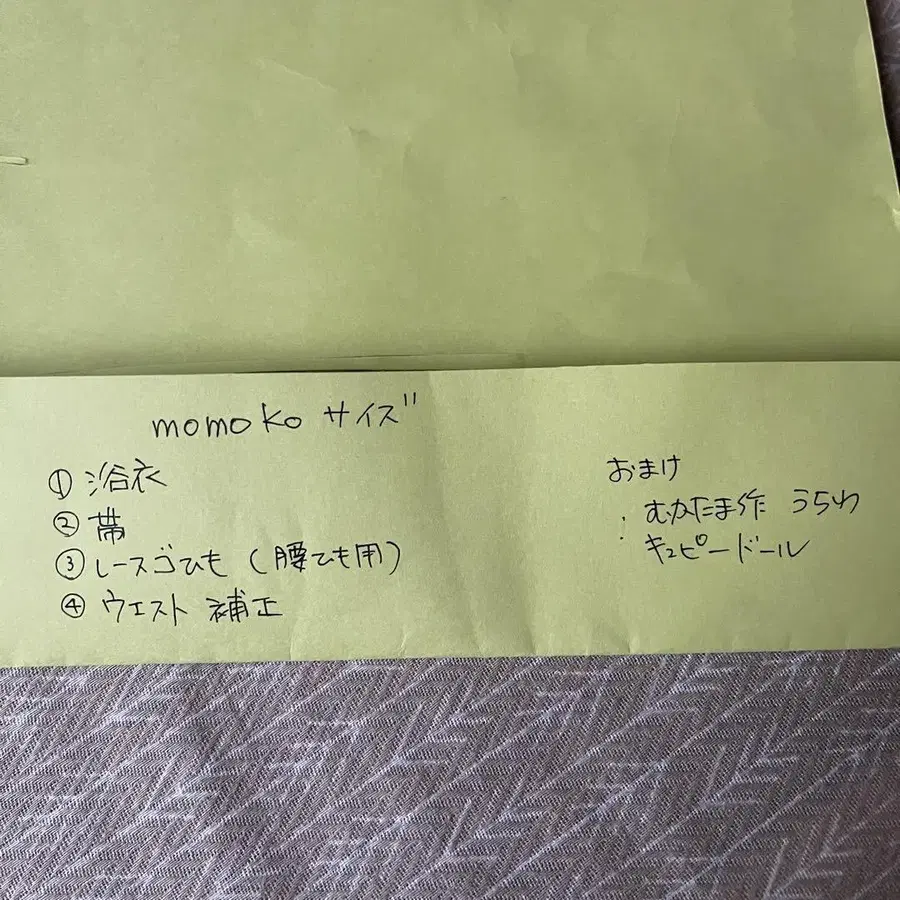 momoko サイズ
① 浴衣
② 帯
③ レースゴひも (腰ひも用)
④ ウエスト 補正
おまけ
・むかたま作 うちわ
・キューピードール